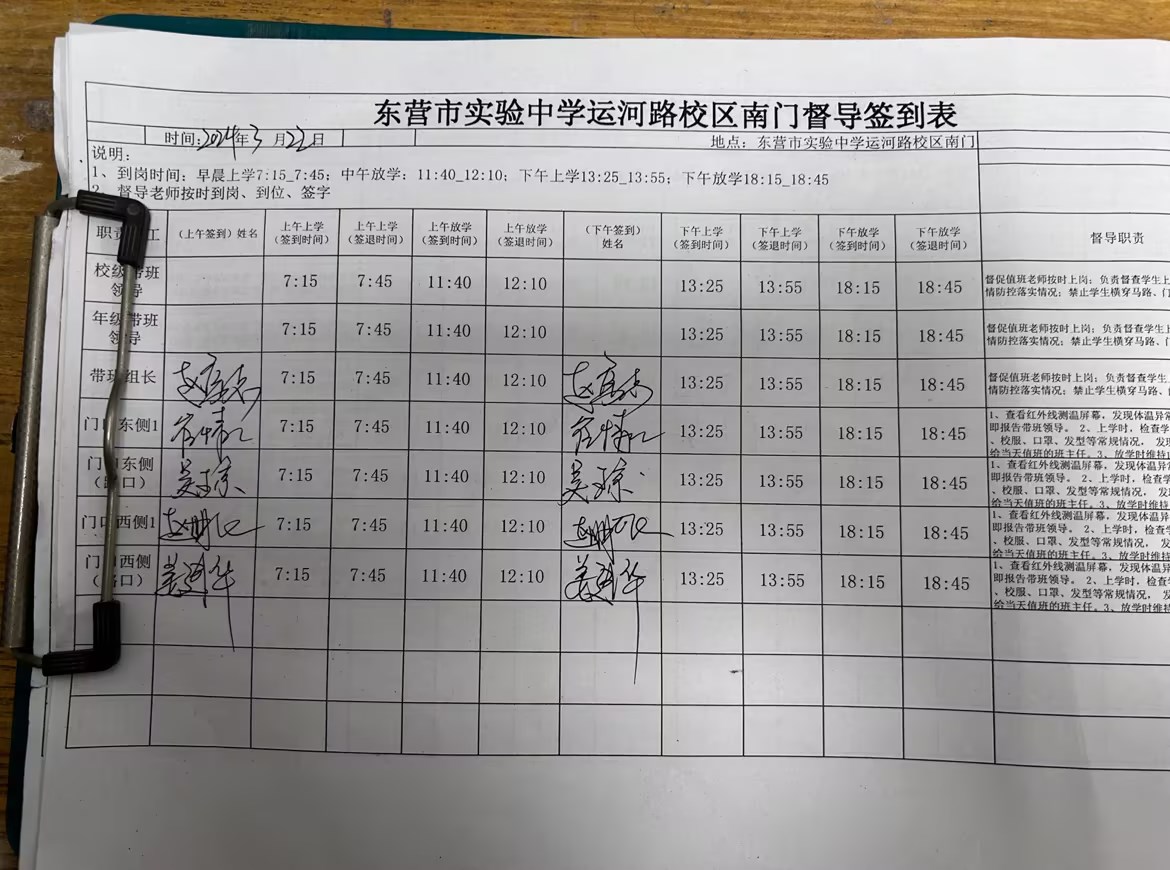 东营市实验中学运河路校区南门督导签到表
时间:2024年3月22日 地点：东营市实验中学运河路校区南门
说明:
1、到岗时间：早晨上学7:15_7:45；中午放学：11:40_12:10；下午上学13:25_13:55；下午放学18:15_18:45
2、督导老师按时到岗、到位、签字
职责 工 （上午签到）姓名 上午上学（签到时间） 上午上学（签退时间） 上午放学（签到时间） 上午放学（签退时间） （下午签到）姓名 下午上学（签到时间） 下午上学（签退时间） 下午放学（签到时间） 下午放学（签退时间） 督导职责
校级带班领导 7:15 7:45 11:40 12:10 13:25 13:55 18:15 18:45 督促值班老师按时上岗；负责督查学生上
情防控落实情况；禁止学生横穿马路、门
年级带班领导 7:15 7:45 11:40 12:10 13:25 13:55 18:15 18:45 督促值班老师按时上岗；负责督查学生上
情防控落实情况；禁止学生横穿马路、门
带班组长 7:15 7:45 11:40 12:10 13:25 13:55 18:15 18:45 督促值班老师按时上岗；负责督查学生上
情防控落实情况；禁止学生横穿马路、
门口东侧1 7:15 7:45 11:40 12:10 13:25 13:55 18:15 18:45 1、查看红外线测温屏幕，发现体温异常
即报告带班领导。 2、上学时，检查学
、校服、口罩、发型等常规情况， 发
给当天值班的班主任。3、放学时维持
门口东侧（路口） 7:15 7:45 11:40 12:10 13:25 13:55 18:15 18:45 1、查看红外线测温屏幕，发现体温异
即报告带班领导。 2、上学时，检查学
、校服、口罩、发型等常规情况， 发
给当天值班的班主任。3、放学时维持
门口西侧1 7:15 7:45 11:40 12:10 13:25 13:55 18:15 18:45 1、查看红外线测温屏幕，发现体温异
即报告带班领导。 2、上学时，检查学
、校服、口罩、发型等常规情况， 发
给当天值班的班主任。3、放学时维持
门口西侧（路口） 7:15 7:45 11:40 12:10 13:25 13:55 18:15 18:45 1、查看红外线测温屏幕，发现体温异
即报告带班领导。 2、上学时，检查学
、校服、口罩、发型等常规情况， 发
给当天值班的班主任。3、放学时维持